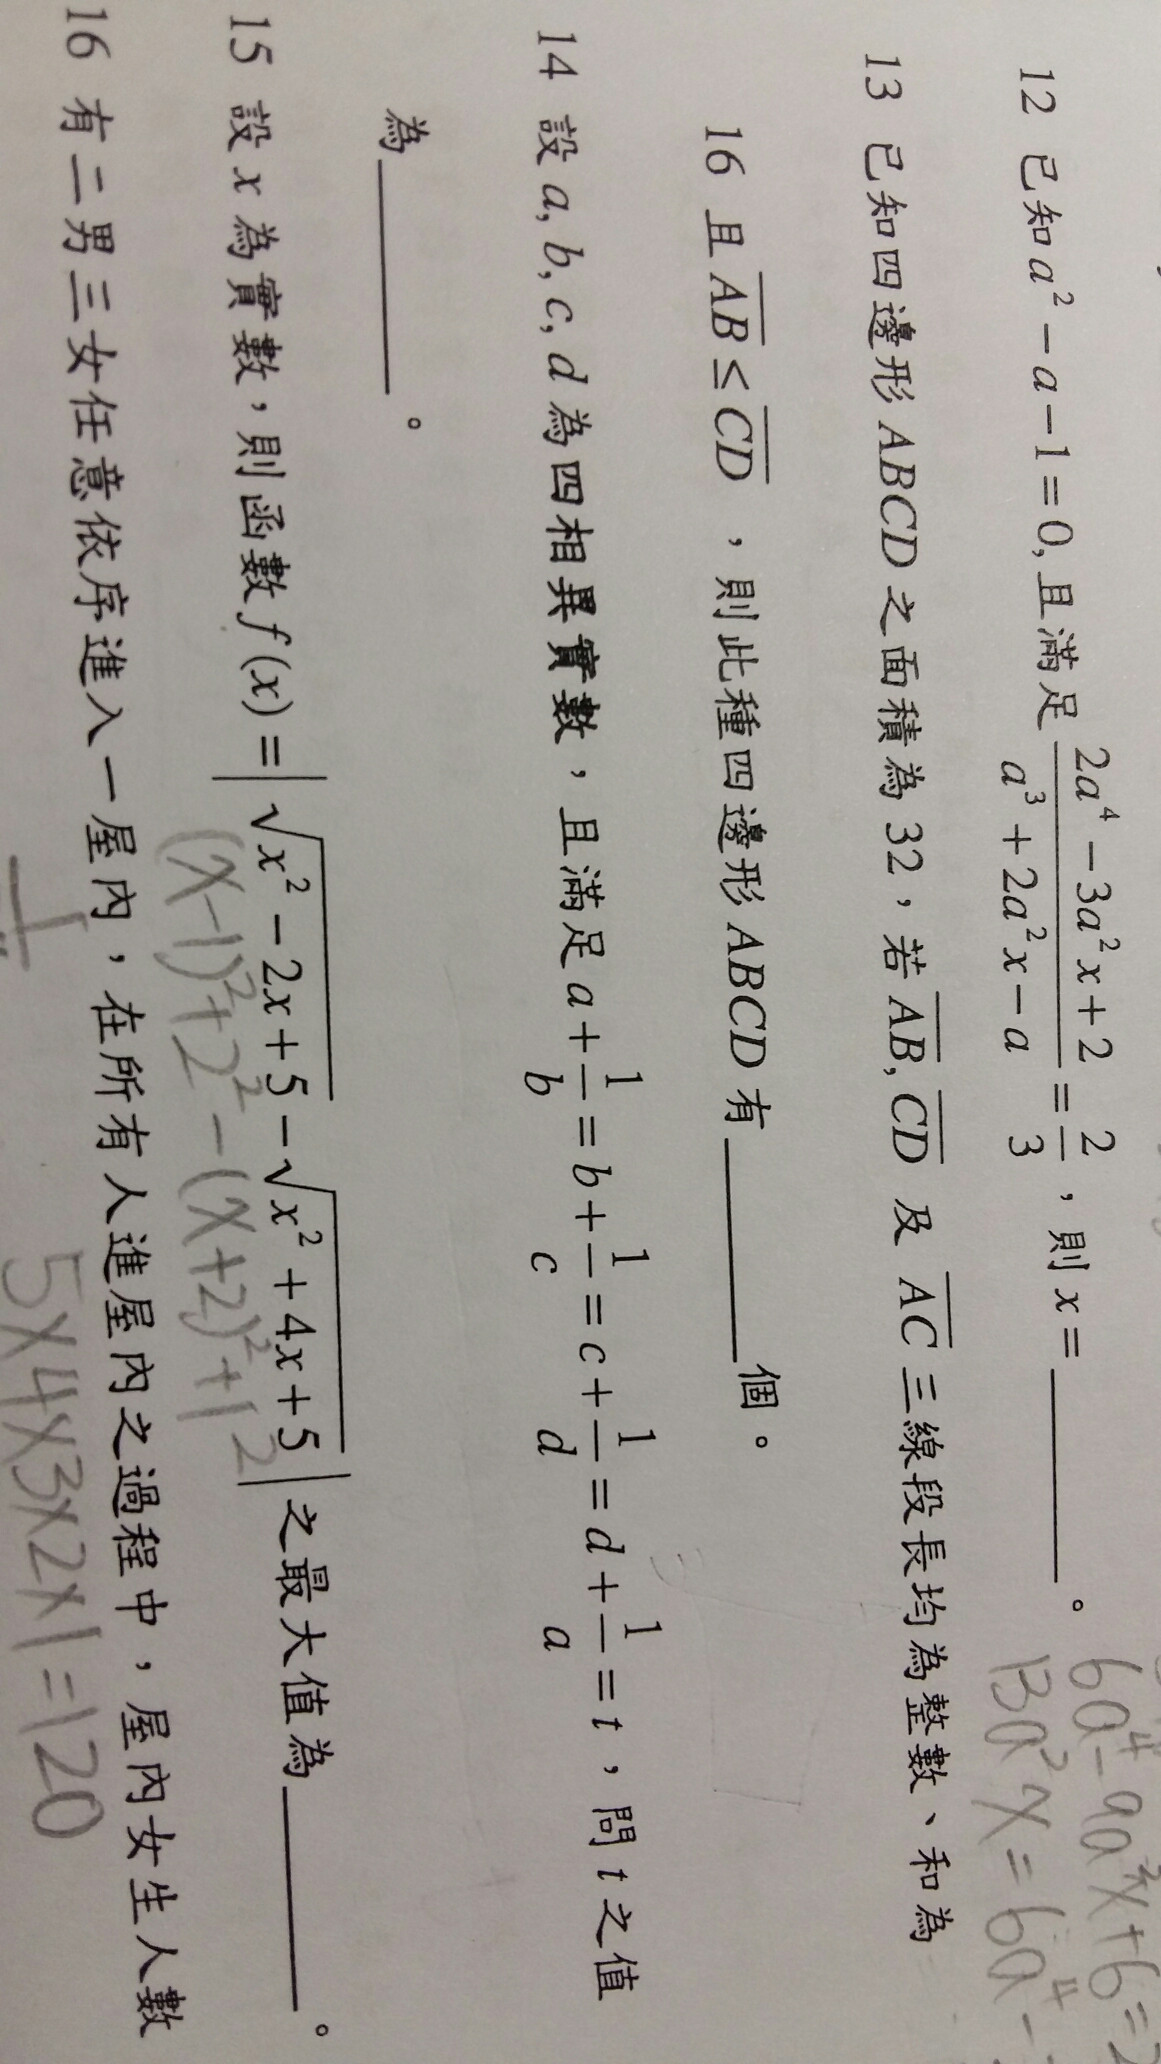 12 已知 a² − a − 1 = 0, 且滿足 (2a⁴ − 3a²x + 2)/(a³ + 2a²x − a) = 2/3 , 則 x = ______ 。
6a⁴ − 9a²x + 6 =
13a²x = 6a⁴ −
13 已知四邊形 ABCD 之面積為 32，若 \overline{AB}, \overline{CD} 及 \overline{AC} 三線段長均為整數、和為
16 且 \overline{AB} ≤ \overline{CD} ，則此種四邊形 ABCD 有 ______ 個。
14 設 a, b, c, d 為四相異實數，且滿足 a + 1/b = b + 1/c = c + 1/d = d + 1/a = t，問 t 之值
為 ______ 。
15 設 x 為實數，則函數 f(x) = |√(x² − 2x + 5) − √(x² + 4x + 5)| 之最大值為 ______ 。
(x−1)² + 2² − (x+2)² + 1²
16 有二男三女任意依序進入一屋內，在所有人進屋內之過程中，屋內女生人數
5×4×3×2×1=120